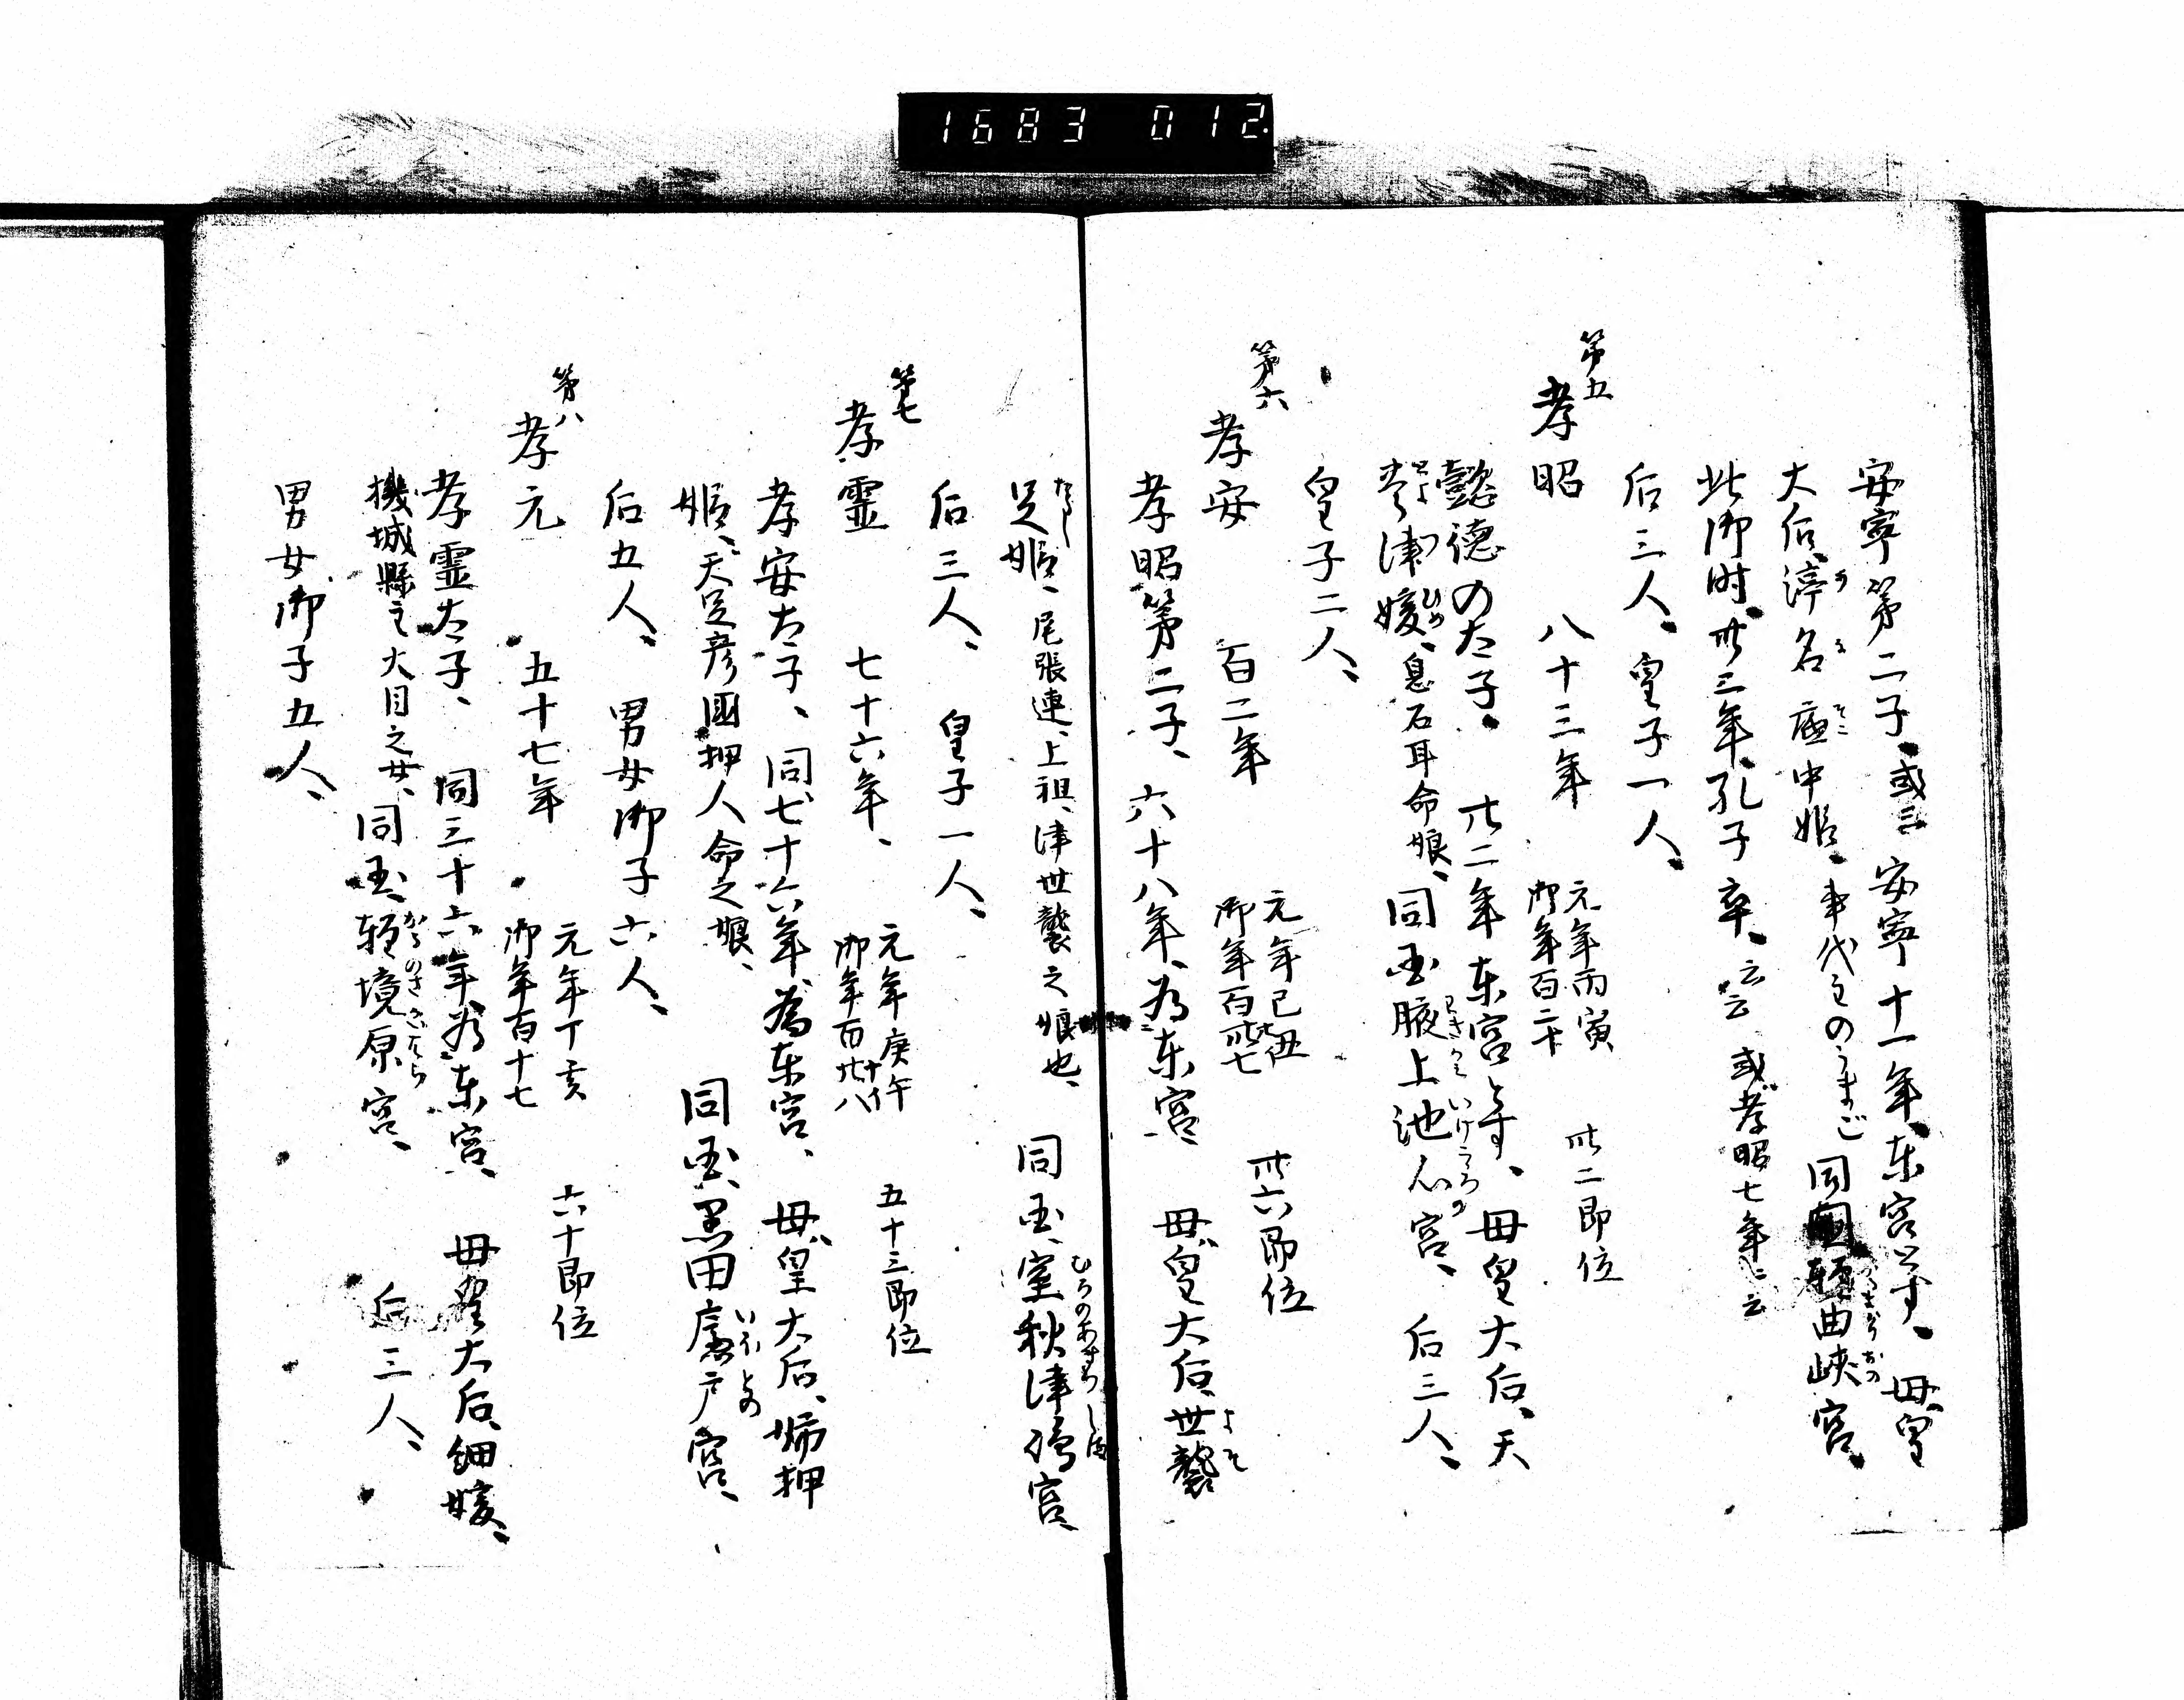 1683 012.
安寧第二子、或云安寧十一年、東宮とす、母皇
大后、渟名底中姫、事代主のうまご 同國軽曲峡宮、
此御時、卅三年、孔子卒、云云 或孝昭七年ニ云
后三人、皇子一人、
第五
孝昭 八十三年 元年丙寅 御年百二十 卅二即位
懿徳の太子、廿二年東宮とす、母皇大后、天
豊津媛、息石耳命娘、同国腋上池心宮、后三人、
皇子二人、
第六
孝安 百二年 元年己丑 御年百卅七 卅六即位
孝昭第二子、六十八年、為東宮、母皇大后、世襲
足姫、尾張連、上祖、津世襲之娘也、同国、室秋津嶋宮、
后三人、皇子一人、
第七
孝霊 七十六年、 元年庚午 御年百廿八 五十三即位
孝安太子、同七十六年、為東宮、母皇大后、姉押
姫、天足彦國押人命之娘、同国、黒田廬戸宮、
后五人、男女御子六人、
第八
孝元 五十七年 元年丁亥 御年百十七 六十即位
孝霊太子、同三十六年、為東宮、母皇大后、細媛、
機城縣主大目之女、同国、軽境原宮、后三人、
男女御子五人、